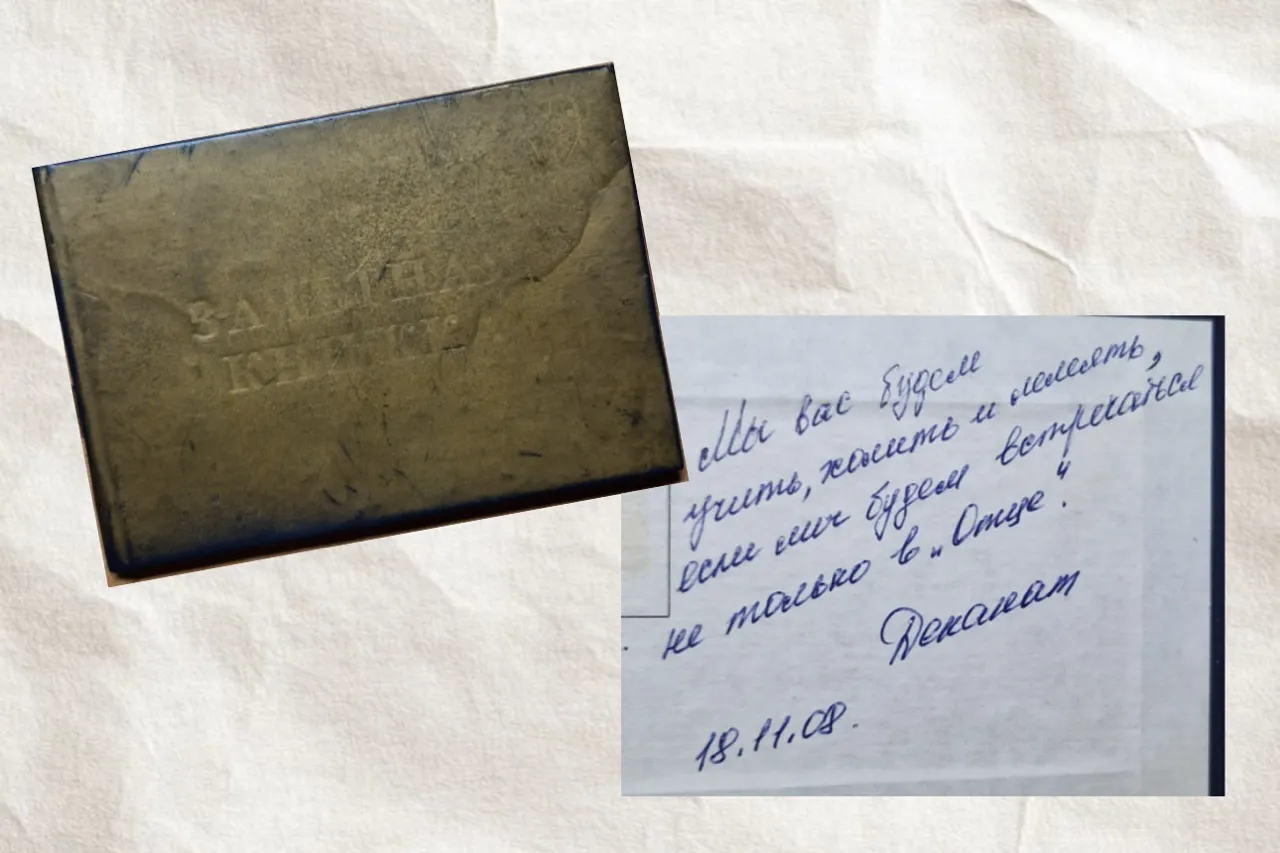 ЗАЧЕТНАЯ
КНИЖКА
Мы вас будем
учить, холить и лелеять,
если мы будем встречаться
не только в „Отце“.
Деканат
18.11.08.